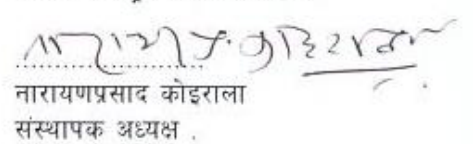 .........................
नारायणप्रसाद कोइराला
संस्थापक अध्यक्ष .